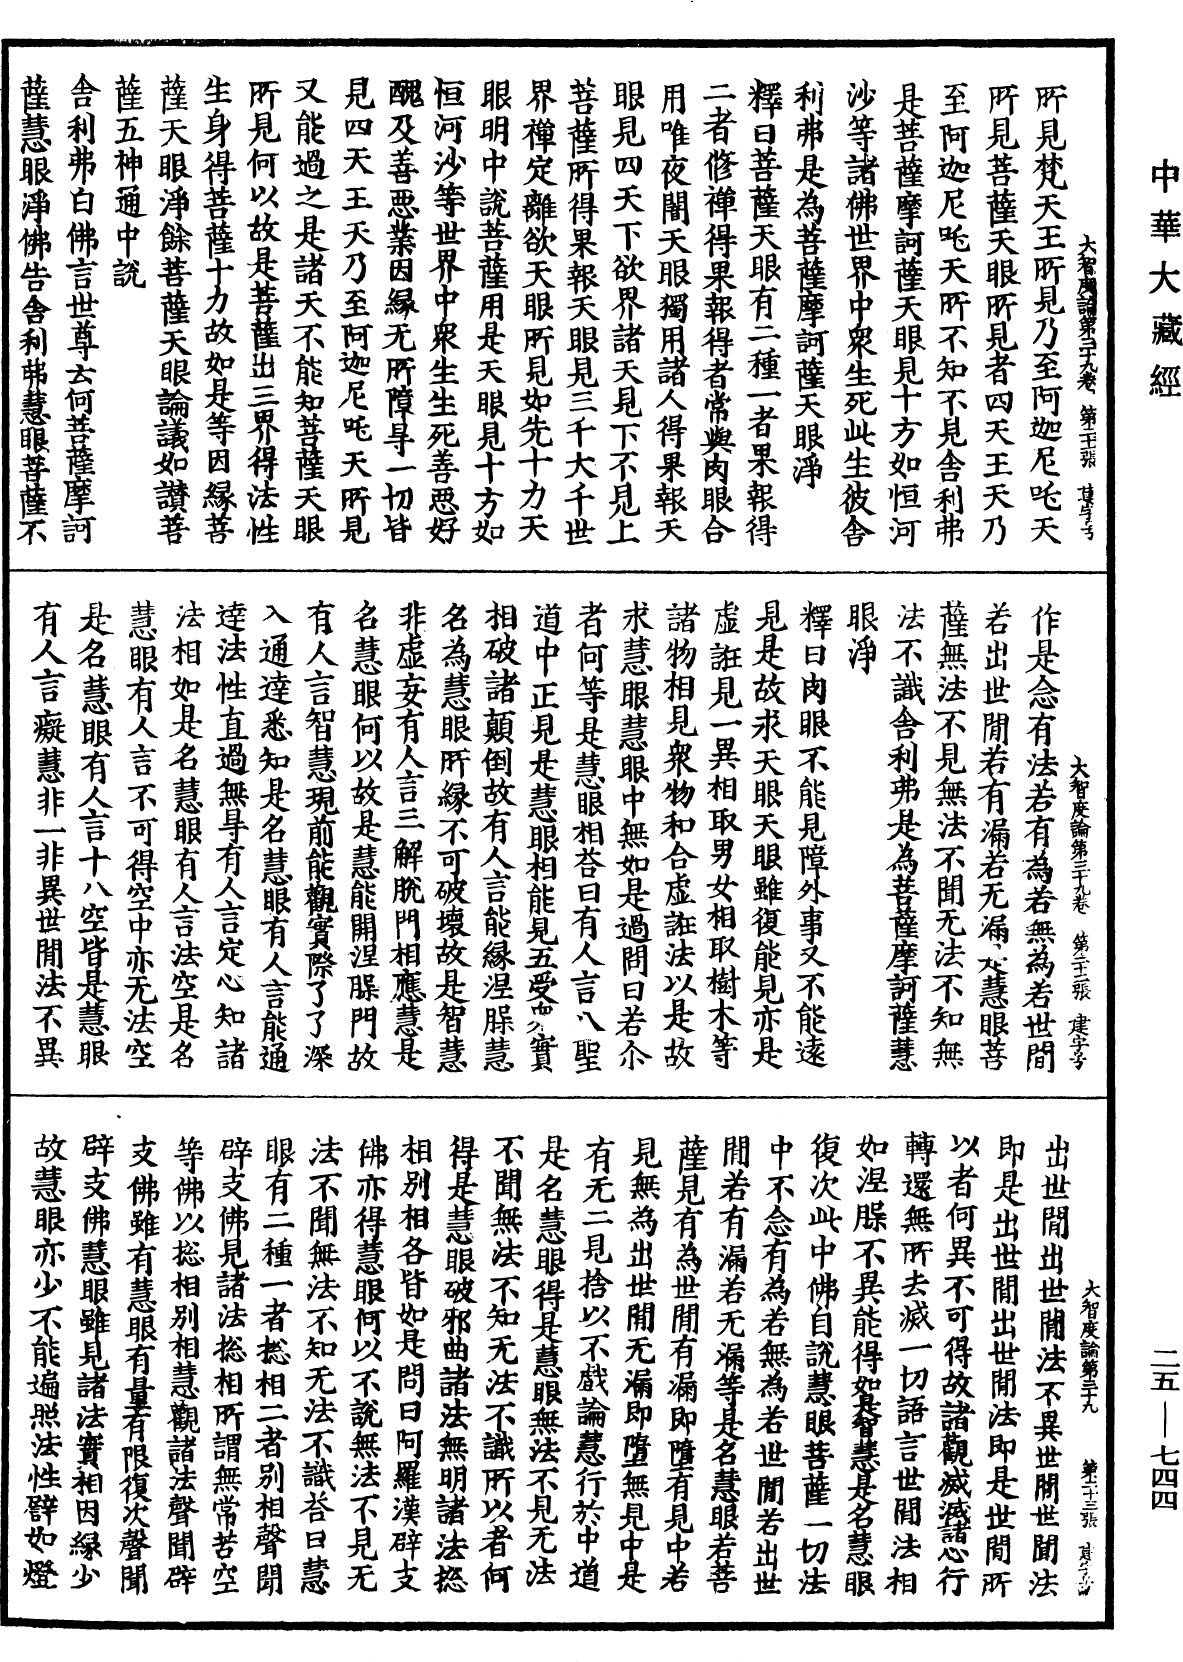 中華大藏經
大智度論第三十九卷 第二十一張 建字号
所見梵天王所見乃至阿迦尼吒天
所見菩薩天眼所見者四天王天乃
至阿迦尼吒天所不知不見舍利弗
是菩薩摩訶薩天眼見十方如恒河
沙等諸佛世界中衆生死此生彼舍
利弗是為菩薩摩訶薩天眼淨
釋曰菩薩天眼有二種一者果報得
二者修禪得果報得者常與肉眼合
用唯夜闇天眼獨用諸人得果報天
眼見四天下欲界諸天見下不見上
菩薩所得果報天眼見三千大千世
界禪定離欲天眼所見如先十力天
眼明中說菩薩用是天眼見十方如
恒河沙等世界中衆生生死善惡好
醜及善惡業因緣无所障㝵一切皆
見四天王天乃至阿迦尼吒天所見
又能過之是諸天不能知菩薩天眼
所見何以故是菩薩出三界得法性
生身得菩薩十力故如是等因緣菩
薩天眼淨餘菩薩天眼論議如讃菩
薩五神通中說
舍利弗白佛言世尊云何菩薩摩訶
薩慧眼淨佛告舍利弗慧眼菩薩不
大智度論第三十九卷 第二十二張 建字号
作是念有法若有為若無為若世間
若出世間若有漏若无漏是慧眼菩
薩無法不見無法不聞无法不知無
法不識舍利弗是為菩薩摩訶薩慧
眼淨
釋曰肉眼不能見障外事又不能遠
見是故求天眼天眼雖復能見亦是
虛誑見一異相取男女相取樹木等
諸物相見衆物和合虛誑法以是故
求慧眼慧眼中無如是過問曰若尒
者何等是慧眼相荅曰有人言八聖
道中正見是慧眼相能見五受衆實
相破諸顛倒故有人言能緣涅槃慧
名為慧眼所緣不可破壞故是智慧
非虛妄有人言三解脫門相應慧是
名慧眼何以故是慧能開涅槃門故
有人言智慧現前能觀實際了了深
入通達悉知是名慧眼有人言能通
達法性直過無㝵有人言定心知諸
法相如是名慧眼有人言法空是名
慧眼有人言不可得空中亦无法空
是名慧眼有人言十八空皆是慧眼
有人言癡慧非一非異世間法不異
大智度論第三十九 第二十三張 建字号
出世間出世間法不異世間世間法
即是出世間出世間法即是世間所
以者何異不可得故諸觀滅諸心行
轉還無所去滅一切語言世間法相
如涅槃不異能得如是智慧是名慧眼
復次此中佛自說慧眼菩薩一切法
中不念有為若無為若世間若出世
間若有漏若无漏等是名慧眼若菩
薩見有為世間有漏即墮有見中若
見無為出世間无漏即墮無見中是
有无二見捨以不戲論慧行於中道
是名慧眼得是慧眼無法不見无法
不聞無法不知无法不識所以者何
得是慧眼破邪曲諸法無明諸法揔
相別相各皆如是問曰阿羅漢辟支
佛亦得慧眼何以不說無法不見无
法不聞無法不知无法不識荅曰慧
眼有二種一者揔相二者別相聲聞
辟支佛見諸法揔相所謂無常苦空
等佛以揔相別相慧觀諸法聲聞辟
支佛雖有慧眼有量有限復次聲聞
辟支佛慧眼雖見諸法實相因緣少
故慧眼亦少不能遍照法性譬如燈
二五—七四四